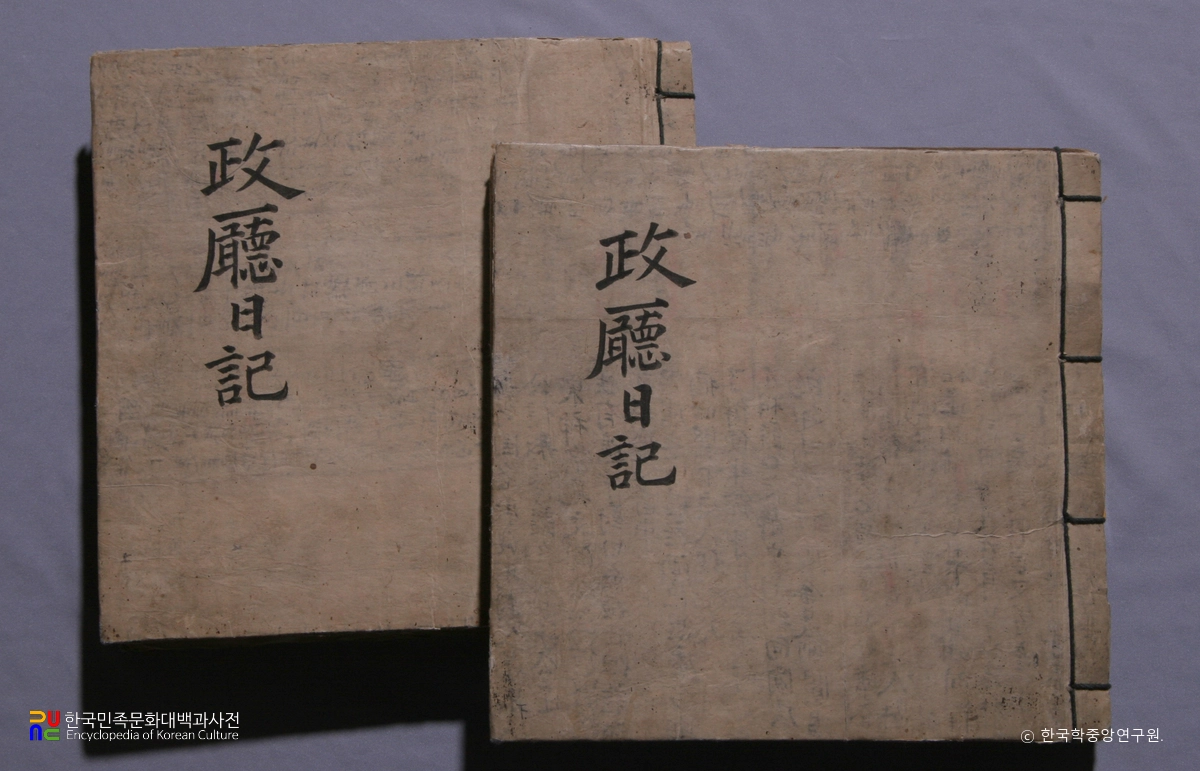 政廳日記
政廳日記
한국민족문화대백과사전
Encyclopedia of Korean Culture
ⓒ 한국학중앙연구원.